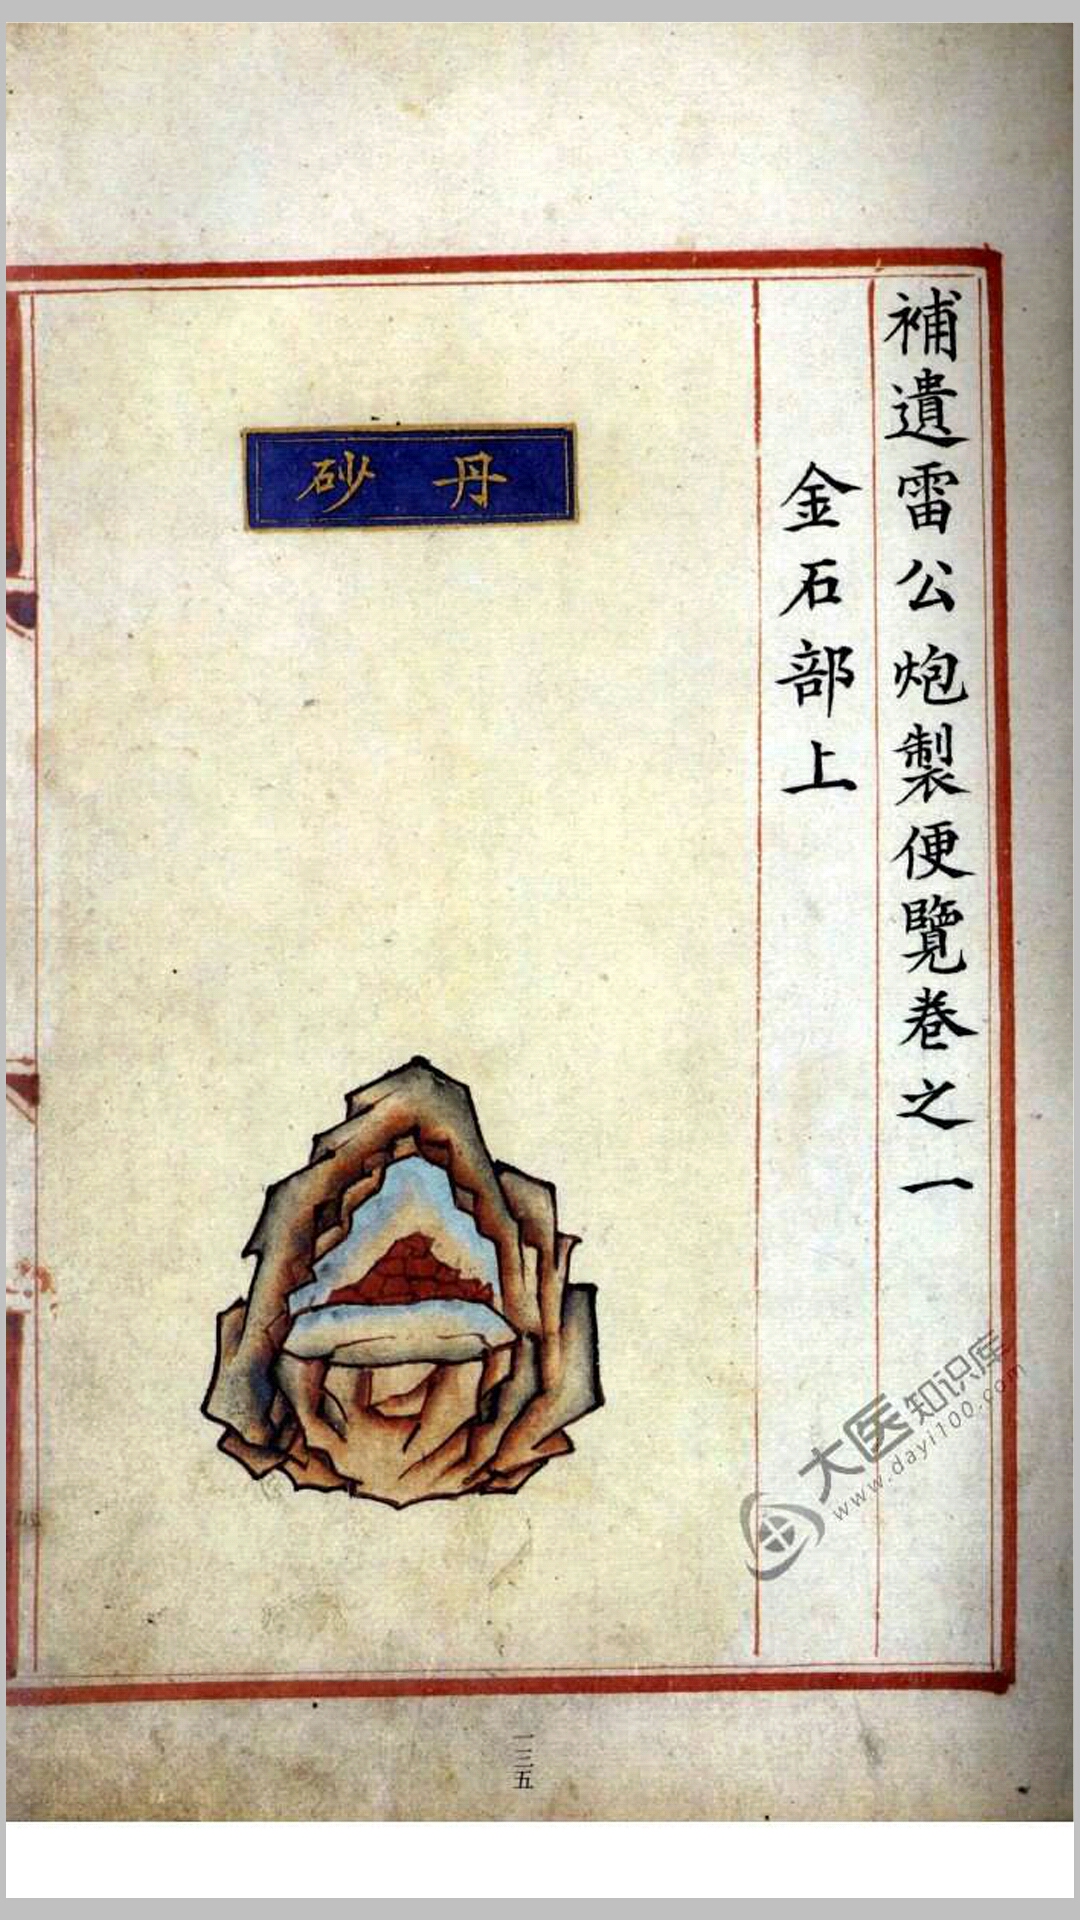 補遺雷公炮製便覽卷之一
金石部上
丹砂
大医知识库
www.dayi100.com
一三五